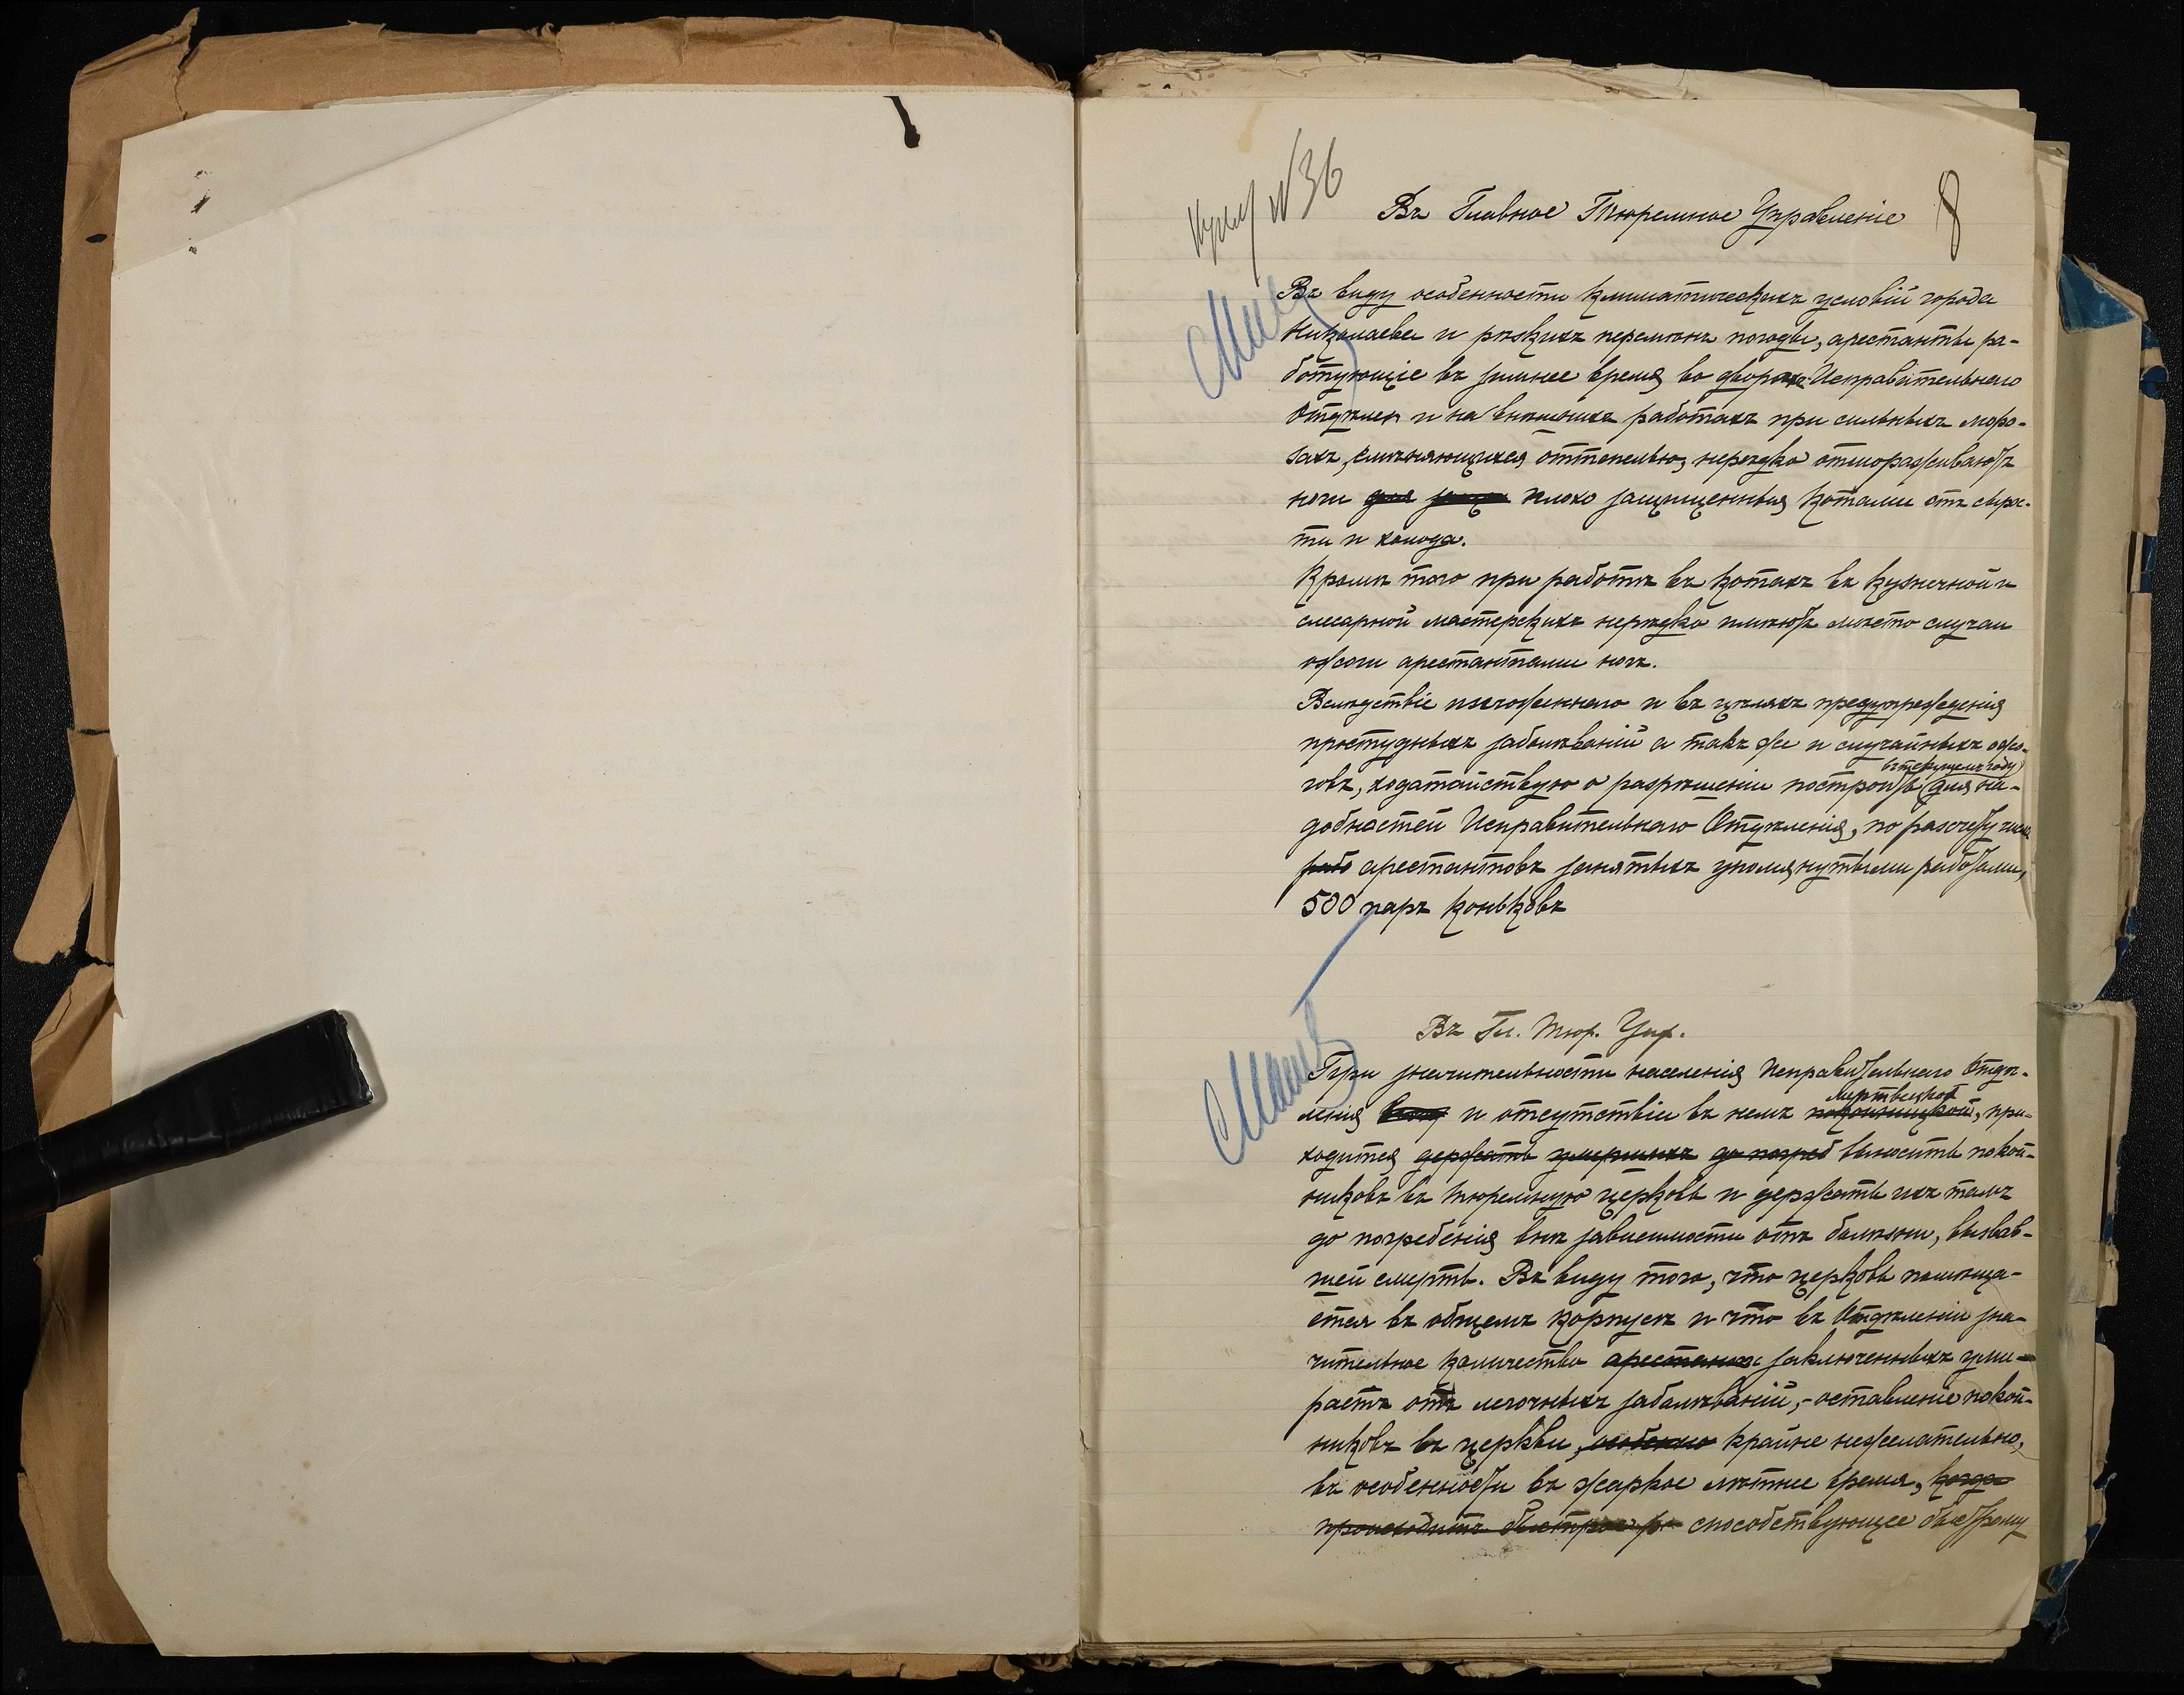 № 36
8
Въ Главное Тюремное Управленіе
Въ виду особенности климатическихъ условій города
Николаева и рѣзкихъ перемѣнъ погоды, арестанты ра-
ботующіе въ зимнее время во дворахъ Исправительнаго
Отдѣлен и на внѣшнихъ работахъ при сильныхъ моро-
захъ, смѣняющихся оттепелью, нерѣдко отмораживаютъ
ноги для защи плохо защищенныя котами отъ сыро-
ти и холода.
Кромѣ того при работѣ въ котахъ въ кузнечной и
слесарной мастерскихъ нерѣдко имѣютъ мѣсто случаи
ожоги арестантами ногъ.
Вслѣдствіе изложеннаго и въ цѣляхъ предупрежденія
простудныхъ заболѣваній а такъ же и случайныхъ ожо-
въ текущемъ году
говъ, ходатайствую о разрѣшеніи построить для на-
добностей Исправительнаго Отдѣленія, по разсчету числа
рабо арестантовъ занятыхъ упомянутыми работами,
500 паръ коньковъ
Въ Гл. Тюр. Упр.
При значительности населенія Исправительнаго Отдѣ-
мертвецкой
ленія и отсутствіи въ немъ покойницкой, при-
ходится держать умершихъ до погреб выносить покой-
никовъ въ тюремную церковь и держать ихъ тамъ
до погребенія внѣ зависимости отъ болѣзни, вызвав-
шей смерть. Въ виду того, что церковь помѣща-
ется въ общемъ корпусѣ и что въ Отдѣленіи зна-
чительное количество арестанто заключенныхъ уми-
раетъ отъ легочныхъ заболѣваній,- оставленіе покой-
никовъ въ церкви, особенно крайне нежелательно,
въ особенности въ жаркое лѣтнее время, когда
происходитъ быстрое ра способствующее быстрому